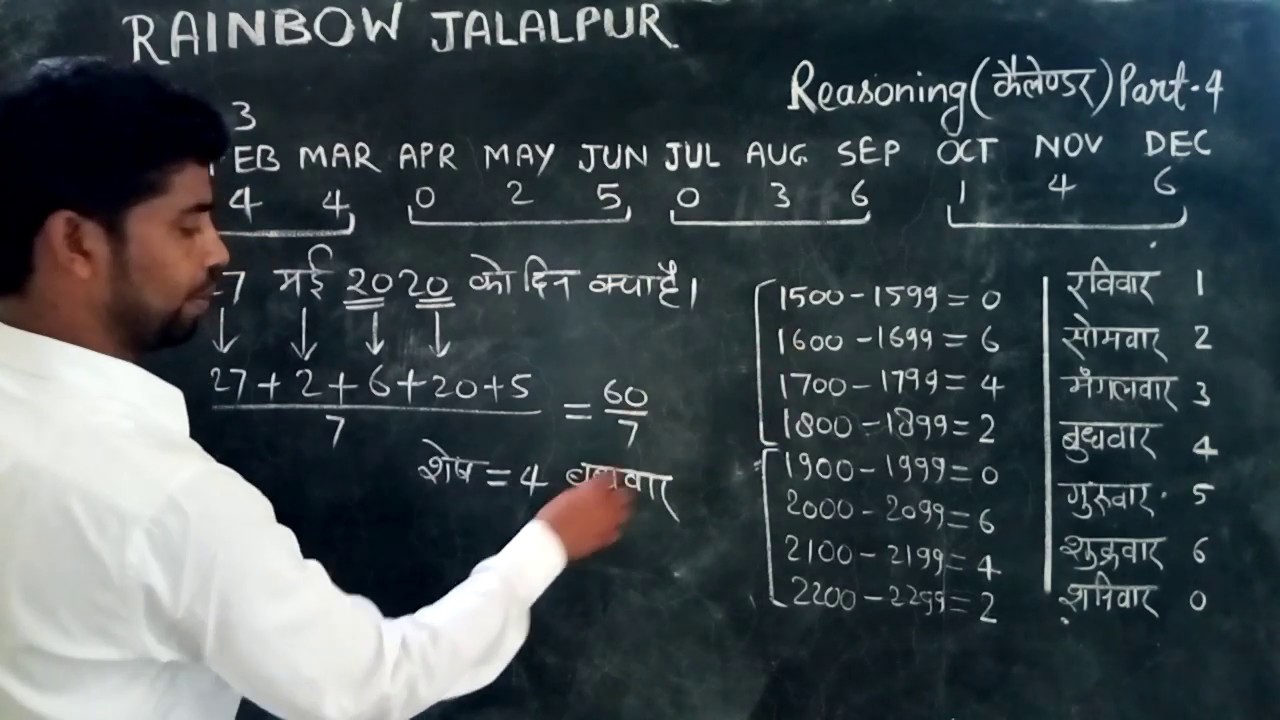 RAINBOW JALALPUR
Reasoning (कैलेण्डर) Part-4
3
EB MAR APR MAY JUN JUL AUG SEP OCT NOV DEC
4 4 0 2 5 0 3 6 1 4 6
7 मई 2020 को दिन क्या है।
27+2+6+20+5 = 60
7 7
शेष = 4 बुधवार
1500-1599=0
1600-1699=6
1700-1799=4
1800-1899=2
1900-1999=0
2000-2099=6
2100-2199=4
2200-2299=2
रविवार 1
सोमवार 2
मंगलवार 3
बुधवार 4
गुरुवार 5
शुक्रवार 6
शनिवार 0